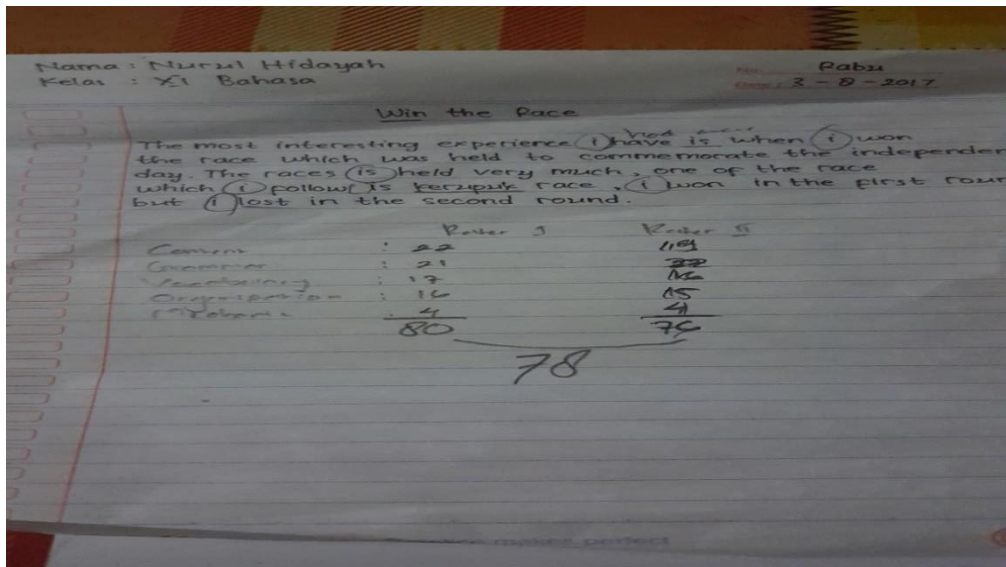 Nama : Nurul Hidayah
Kelas : XI Bahasa
Rabu
3 - 8 - 2017
Win the Race
had
The most interesting experience i have is when i won
the race which was held to commemorate the independen
day. The races is held very much, one of the race
which i follow is kerupuk race, i won in the first roun
but i lost in the second round.
Rater I Rater II
Content : 22 19
Grammar : 21 22
Vocabulary : 17 16
Organization : 16 15
Mechanic : 4 4
80 76
78
makes perfect